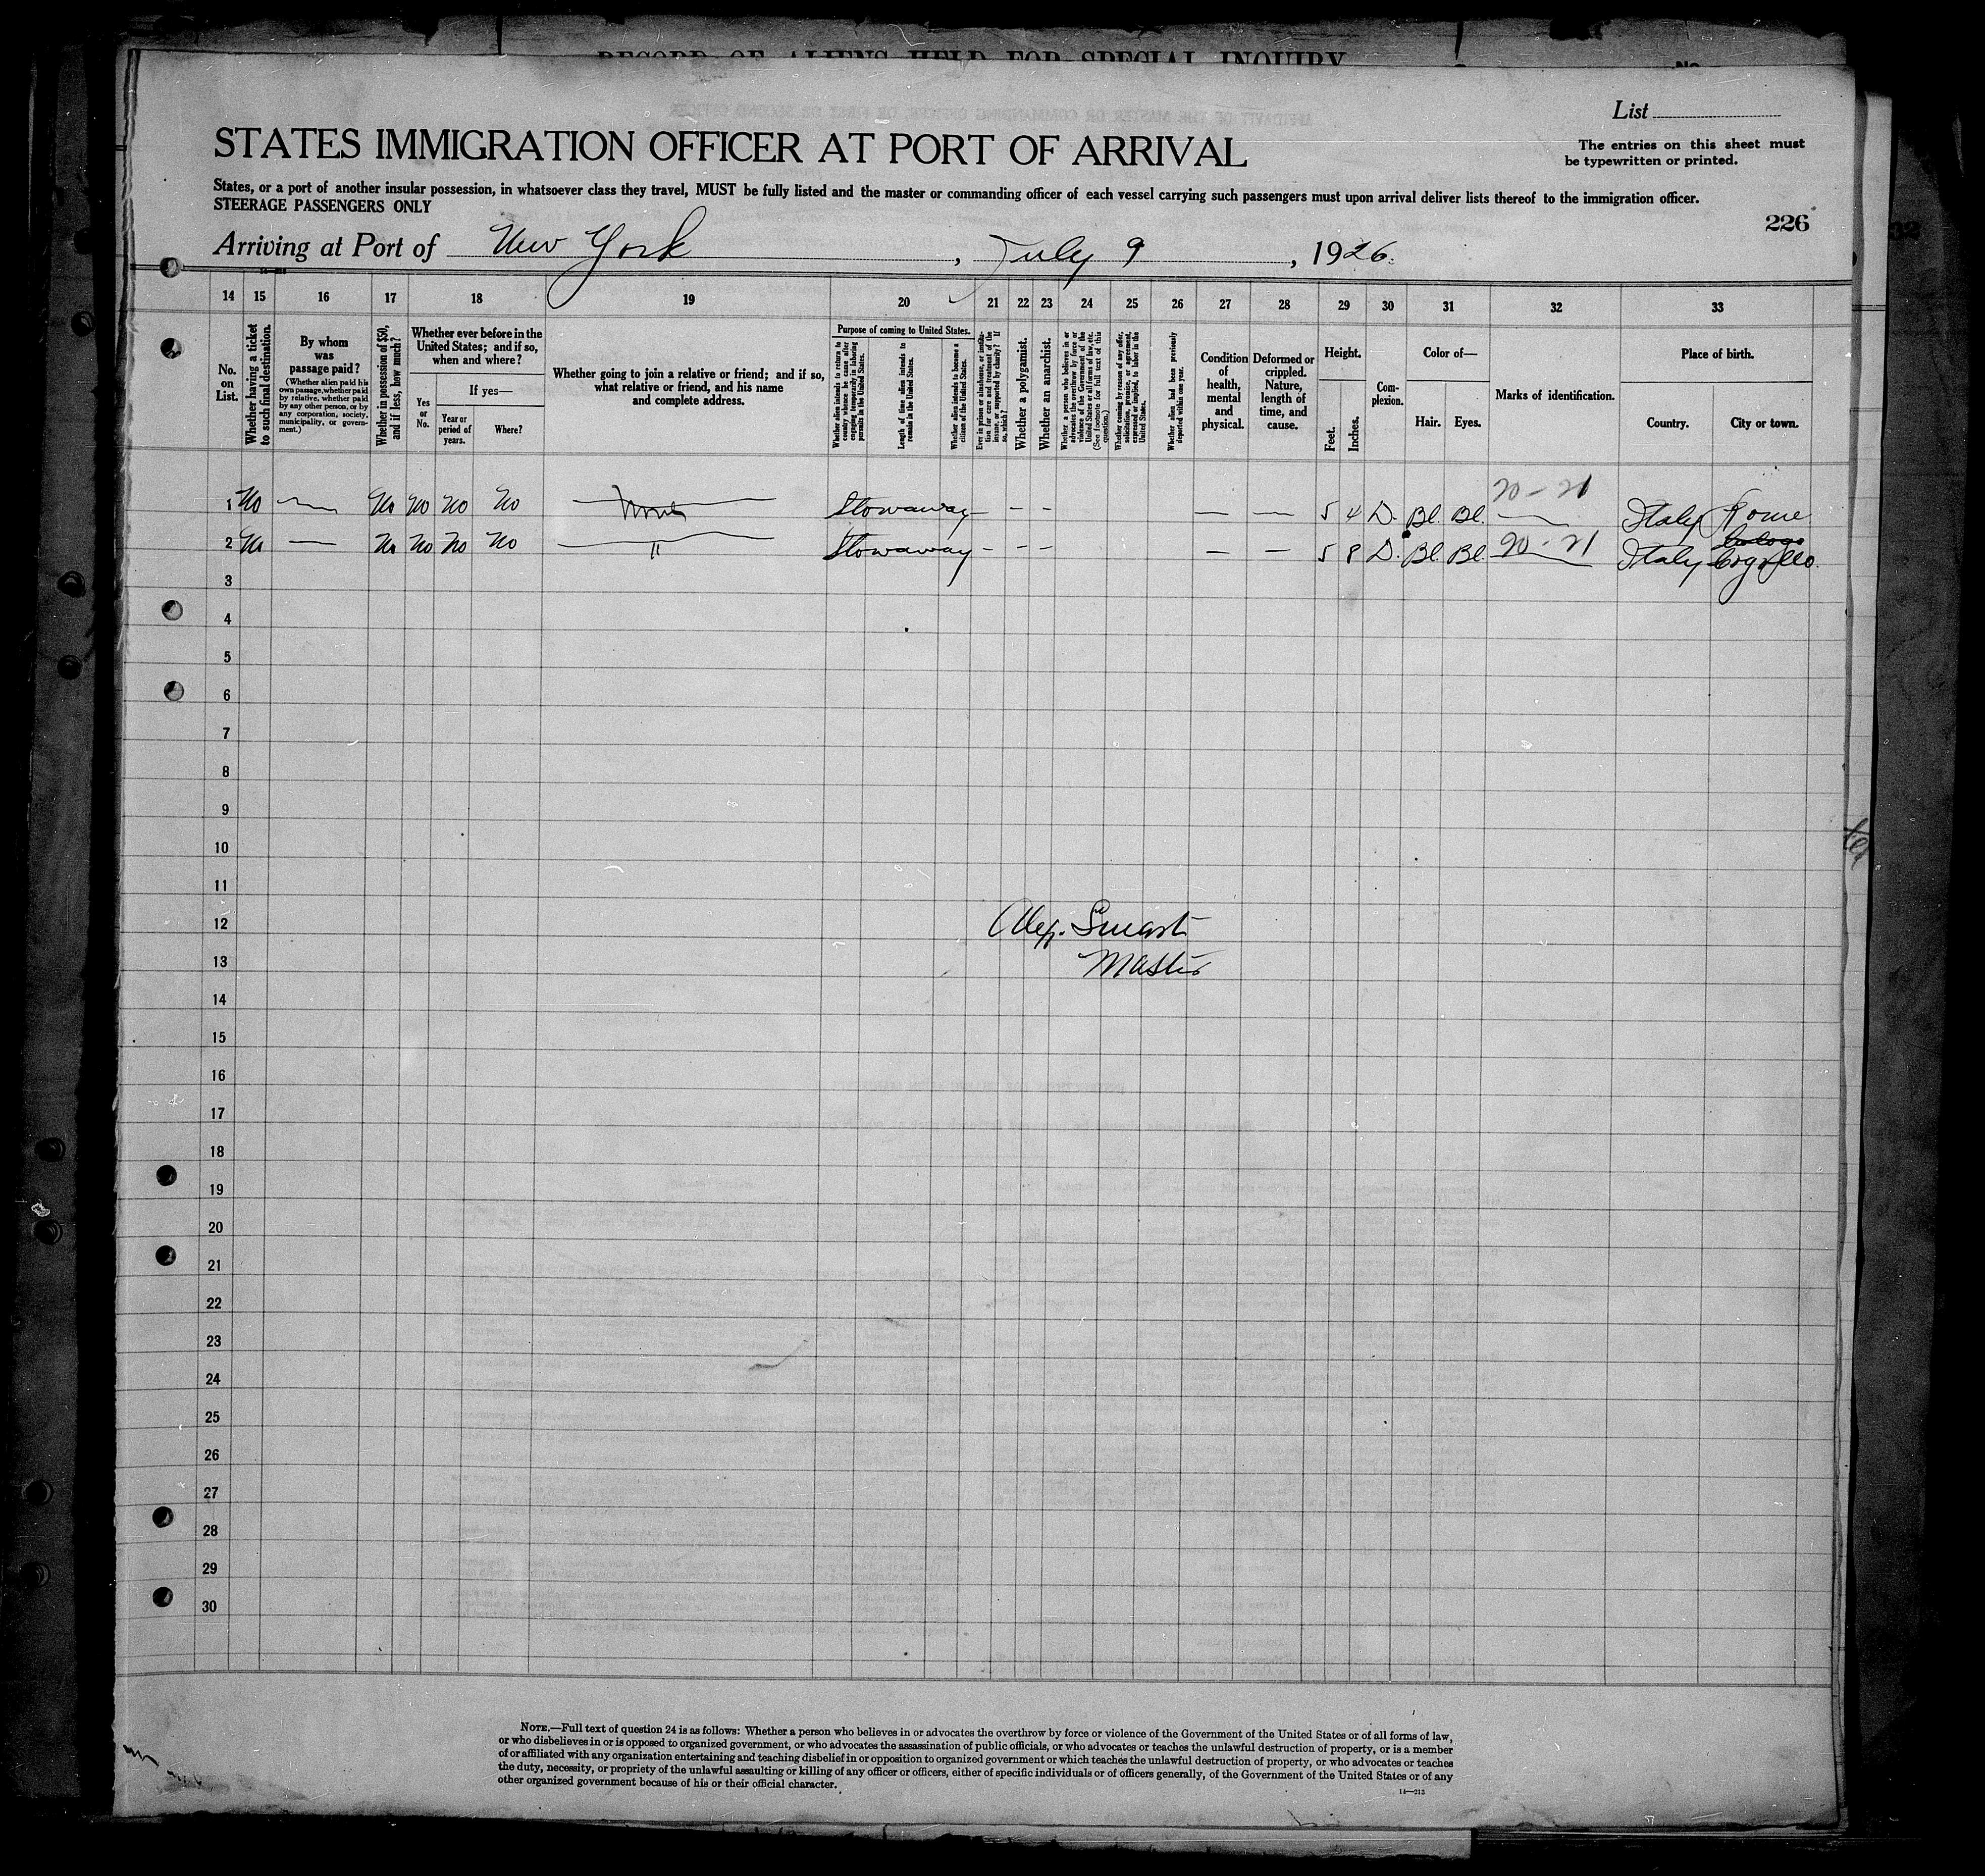 RECORD OF ALIENS HELD FOR SPECIAL INQUIRY
No.
List
STATES IMMIGRATION OFFICER AT PORT OF ARRIVAL
The entries on this sheet must
be typewritten or printed.
States, or a port of another insular possession, in whatsoever class they travel, MUST be fully listed and the master or commanding officer of each vessel carrying such passengers must upon arrival deliver lists thereof to the immigration officer.
STEERAGE PASSENGERS ONLY
226
32
Arriving at Port of New York, July 9, 1926.
14 15 16 17 18 19 20 21 22 23 24 25 26 27 28 29 30 31 32 33
No. on List.
Whether having a ticket to such final destination.
By whom was passage paid?
(Whether alien paid his own passage, whether paid by relative, whether paid by any other person, or by any corporation, society, municipality, or government.)
Whether in possession of $50, and if less, how much?
Whether ever before in the United States; and if so, when and where?
Yes or No.
If yes—
Year or period of years.
Where?
Whether going to join a relative or friend; and if so, what relative or friend, and his name and complete address.
Purpose of coming to United States.
Whether alien intends to return to country whence he came after engaging temporarily in laboring pursuits in the United States.
Length of time alien intends to remain in the United States.
Whether alien intends to become a citizen of the United States.
Ever in prison or almshouse, or institution for care and treatment of the insane, or supported by charity? If so, which?
Whether a polygamist.
Whether an anarchist.
Whether a person who believes in or advocates the overthrow by force or violence of the Government of the United States or all forms of law, etc. (See footnote for full text of this question.)
Whether coming by reason of any offer, solicitation, promise, or agreement, expressed or implied, to labor in the United States.
Whether alien had been previously deported within one year.
Condition of health, mental and physical.
Deformed or crippled. Nature, length of time, and cause.
Height.
Feet.
Inches.
Complexion.
Color of—
Hair.
Eyes.
Marks of identification.
Place of birth.
Country.
City or town.
1 No — No No No No None Stowaway — - - — — 5 4 D. Bl. Bl. 20 - 21 — Italy Rome
2 No — No No No No " Stowaway - - - — — 5 8 D. Bl. Bl. 20 - 21 Italy
3
4
5
6
7
8
9
10
11
12
13
14
15
16
17
18
19
20
21
22
23
24
25
26
27
28
29
30
Alex. Smart
Master
NOTE.—Full text of question 24 is as follows: Whether a person who believes in or advocates the overthrow by force or violence of the Government of the United States or of all forms of law,
or who disbelieves in or is opposed to organized government, or who advocates the assassination of public officials, or who advocates or teaches the unlawful destruction of property, or is a member
of or affiliated with any organization entertaining and teaching disbelief in or opposition to organized government or which teaches the unlawful destruction of property, or who advocates or teaches
the duty, necessity, or propriety of the unlawful assaulting or killing of any officer or officers, either of specific individuals or of officers generally, of the Government of the United States or of any
other organized government because of his or their official character.
14—213